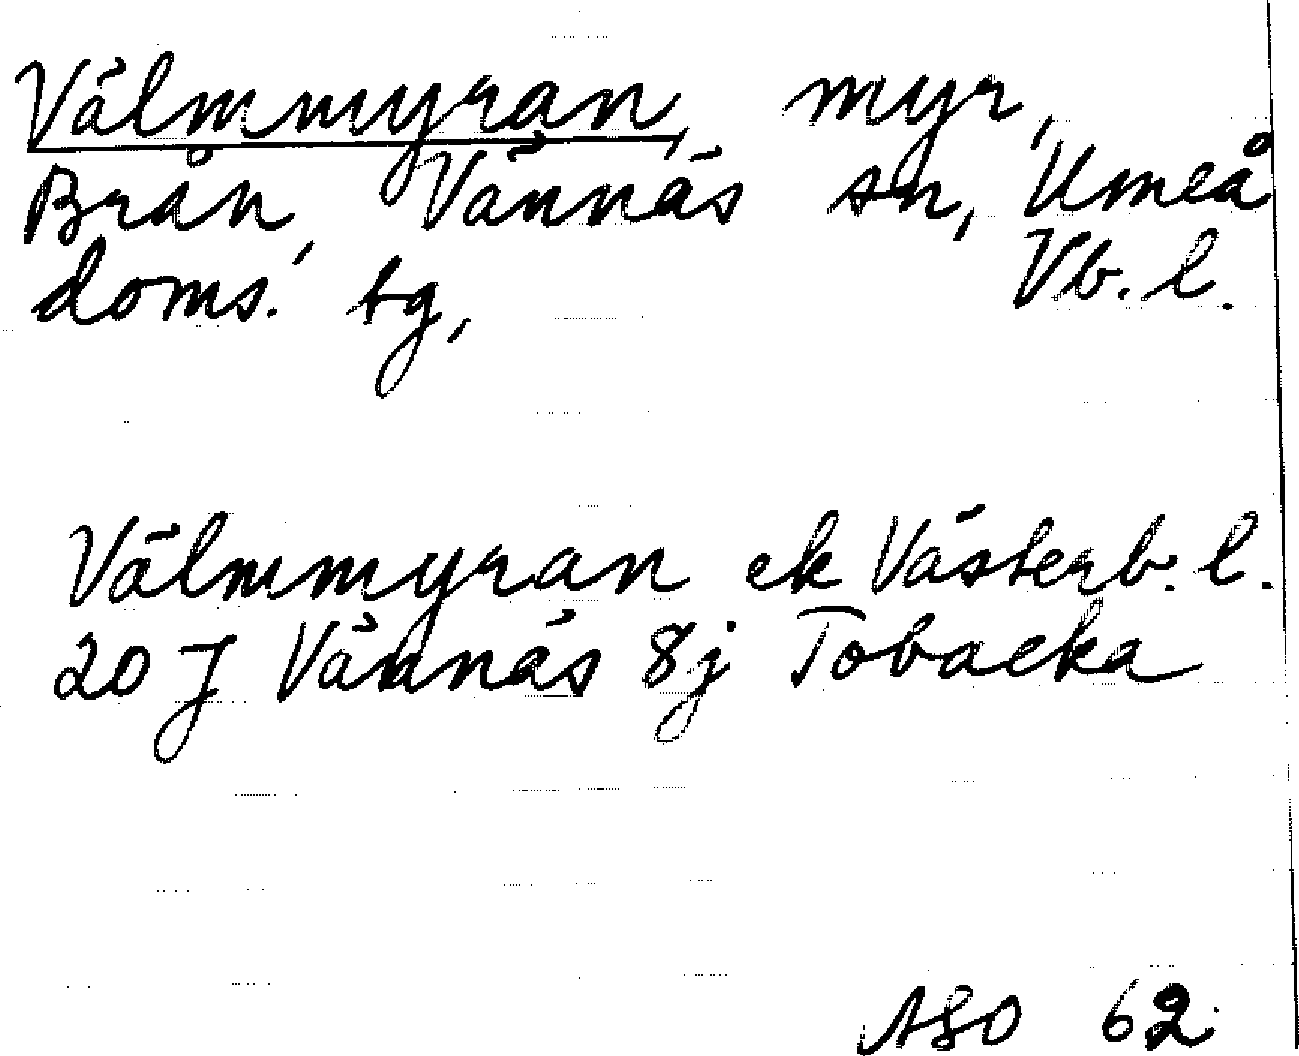 Välmmyran, myr,
Brån, Vännäs sn, Umeå
doms. tg, Vb. l.
Välmmyran ek Västerb. l.
20 J Vännäs 8j Tobacka
ASO 62